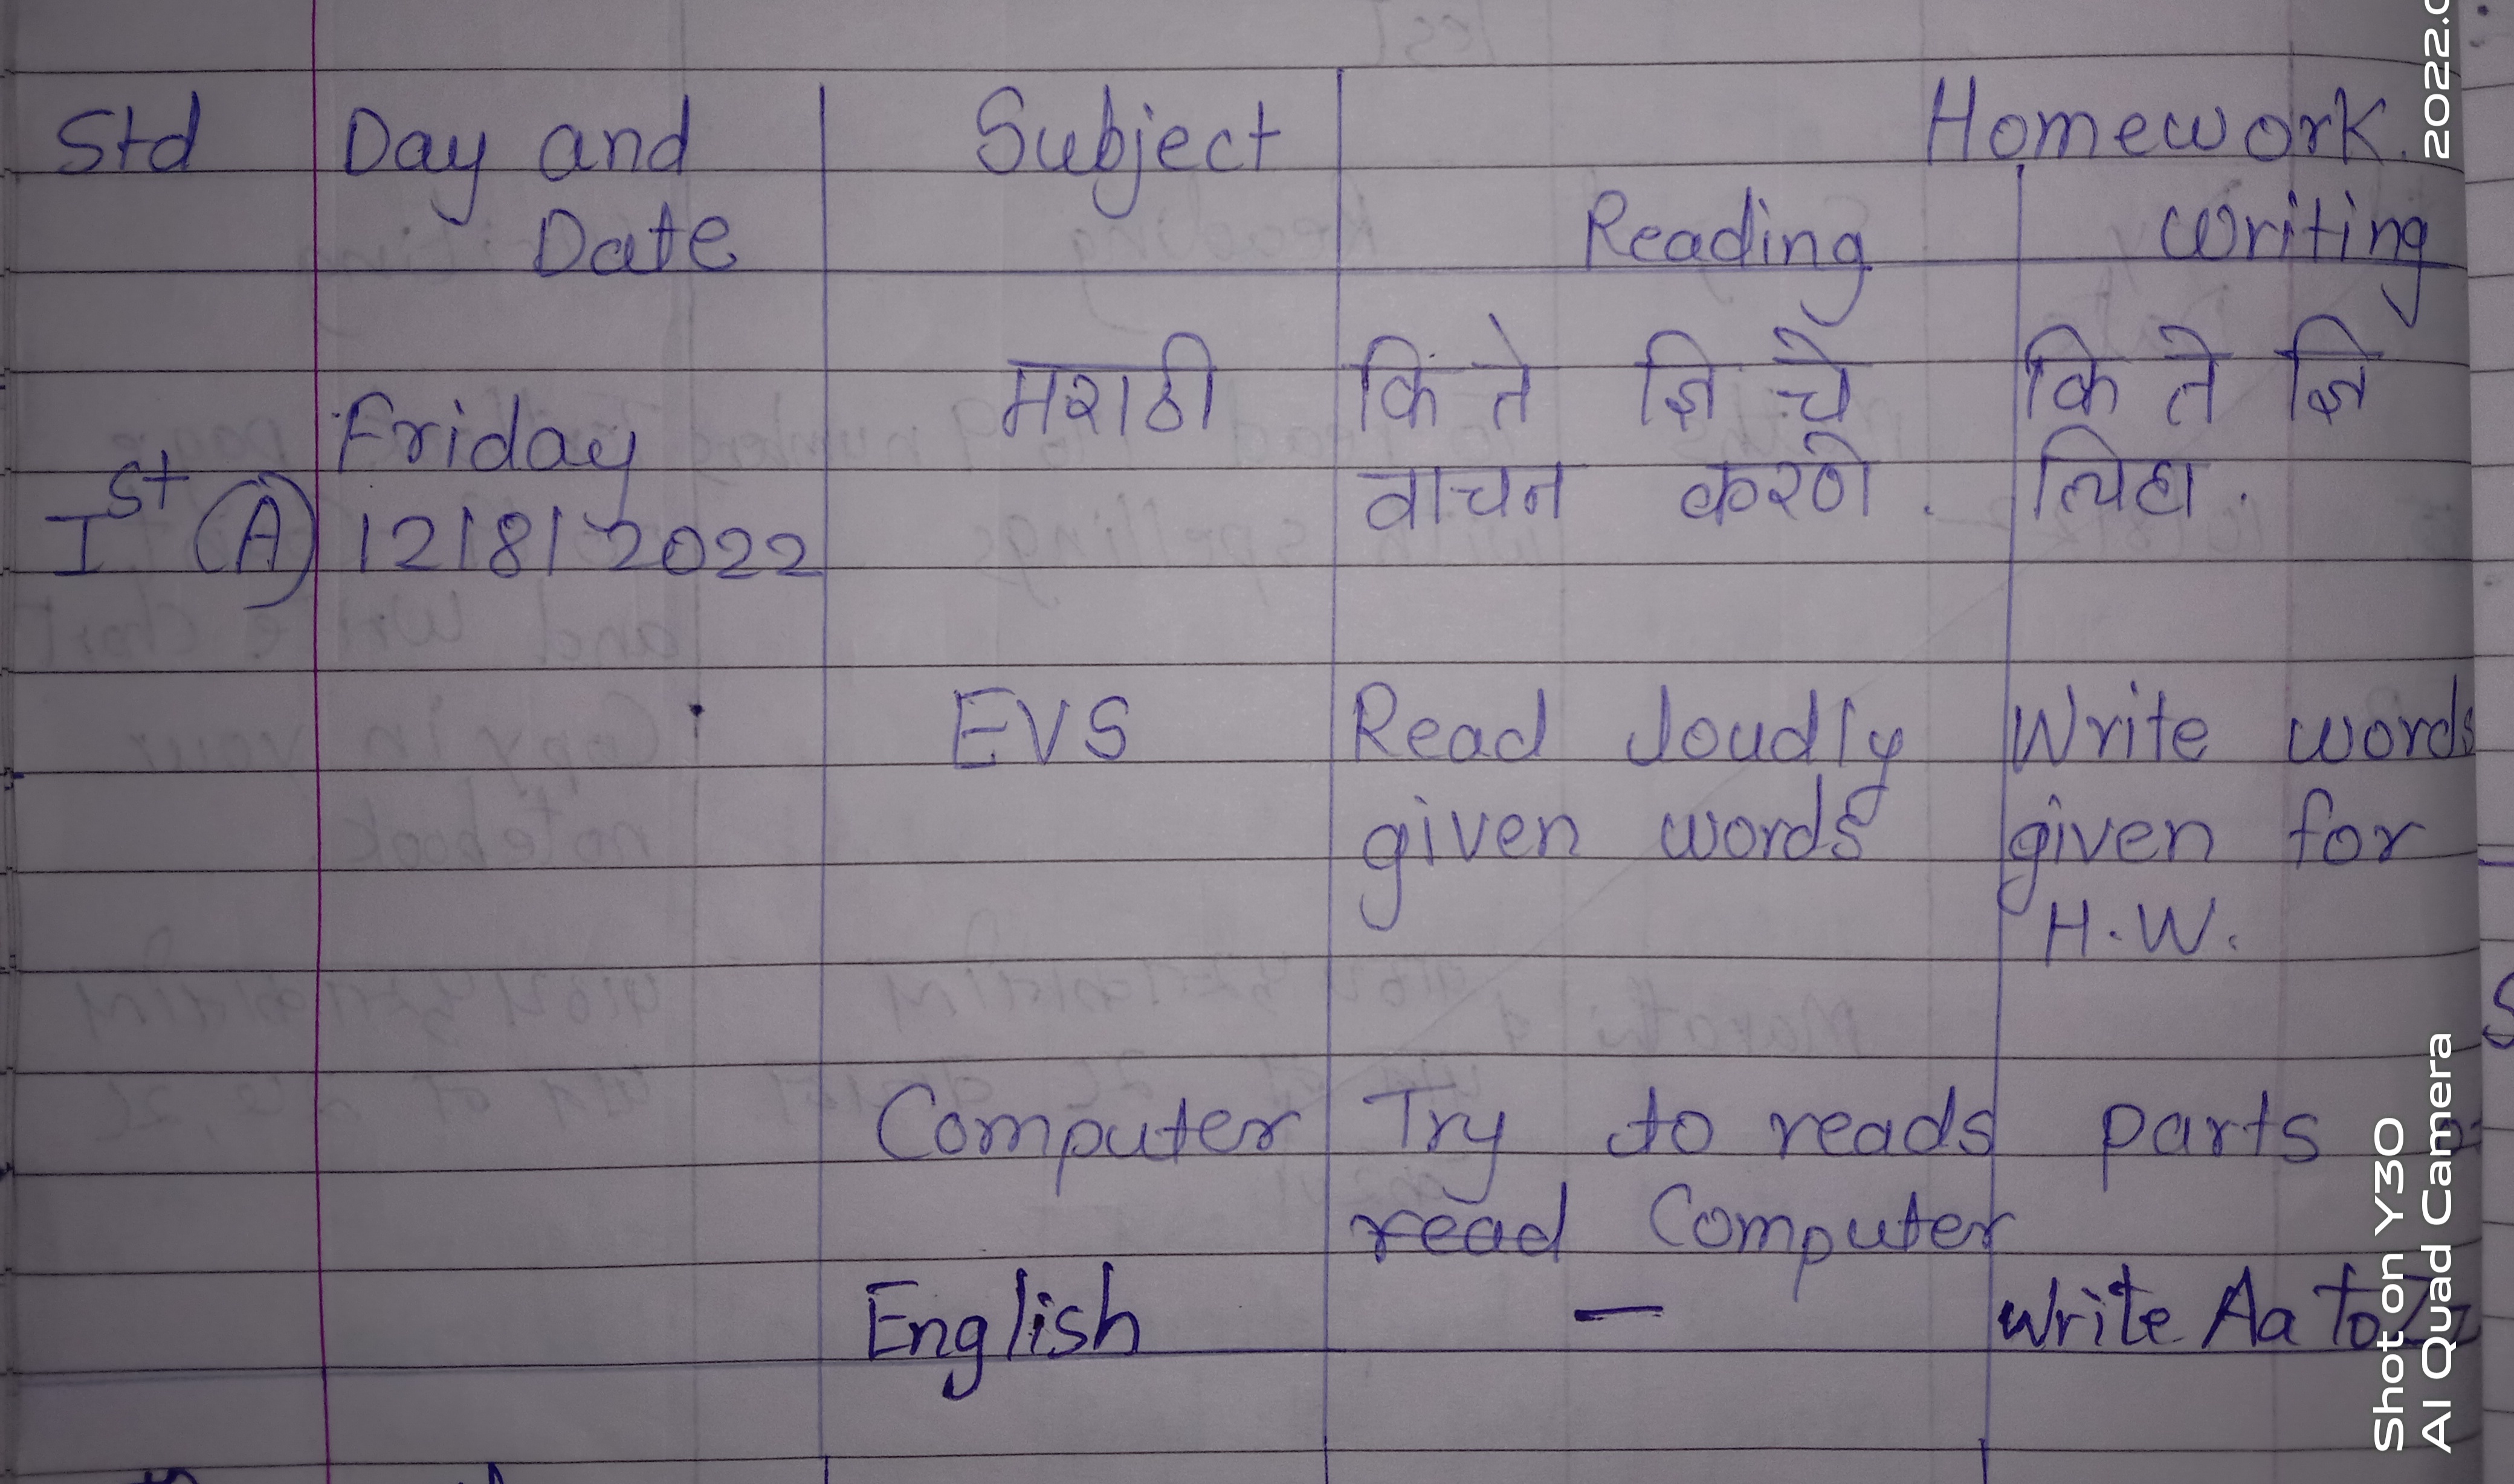 Std Day and Subject Homework.
Date Reading Writing
मराठी कि ते ज्ञि चे कि ते ज्ञि
Friday
Ist (A) 12/8/2022 वाचन करणे. लिहा.
EVS Read loudly Write words
given words given for
H.W.
Computer Try to reads parts
read Computer
English — Write Aa To Zz
Shot on Y30
AI Quad Camera